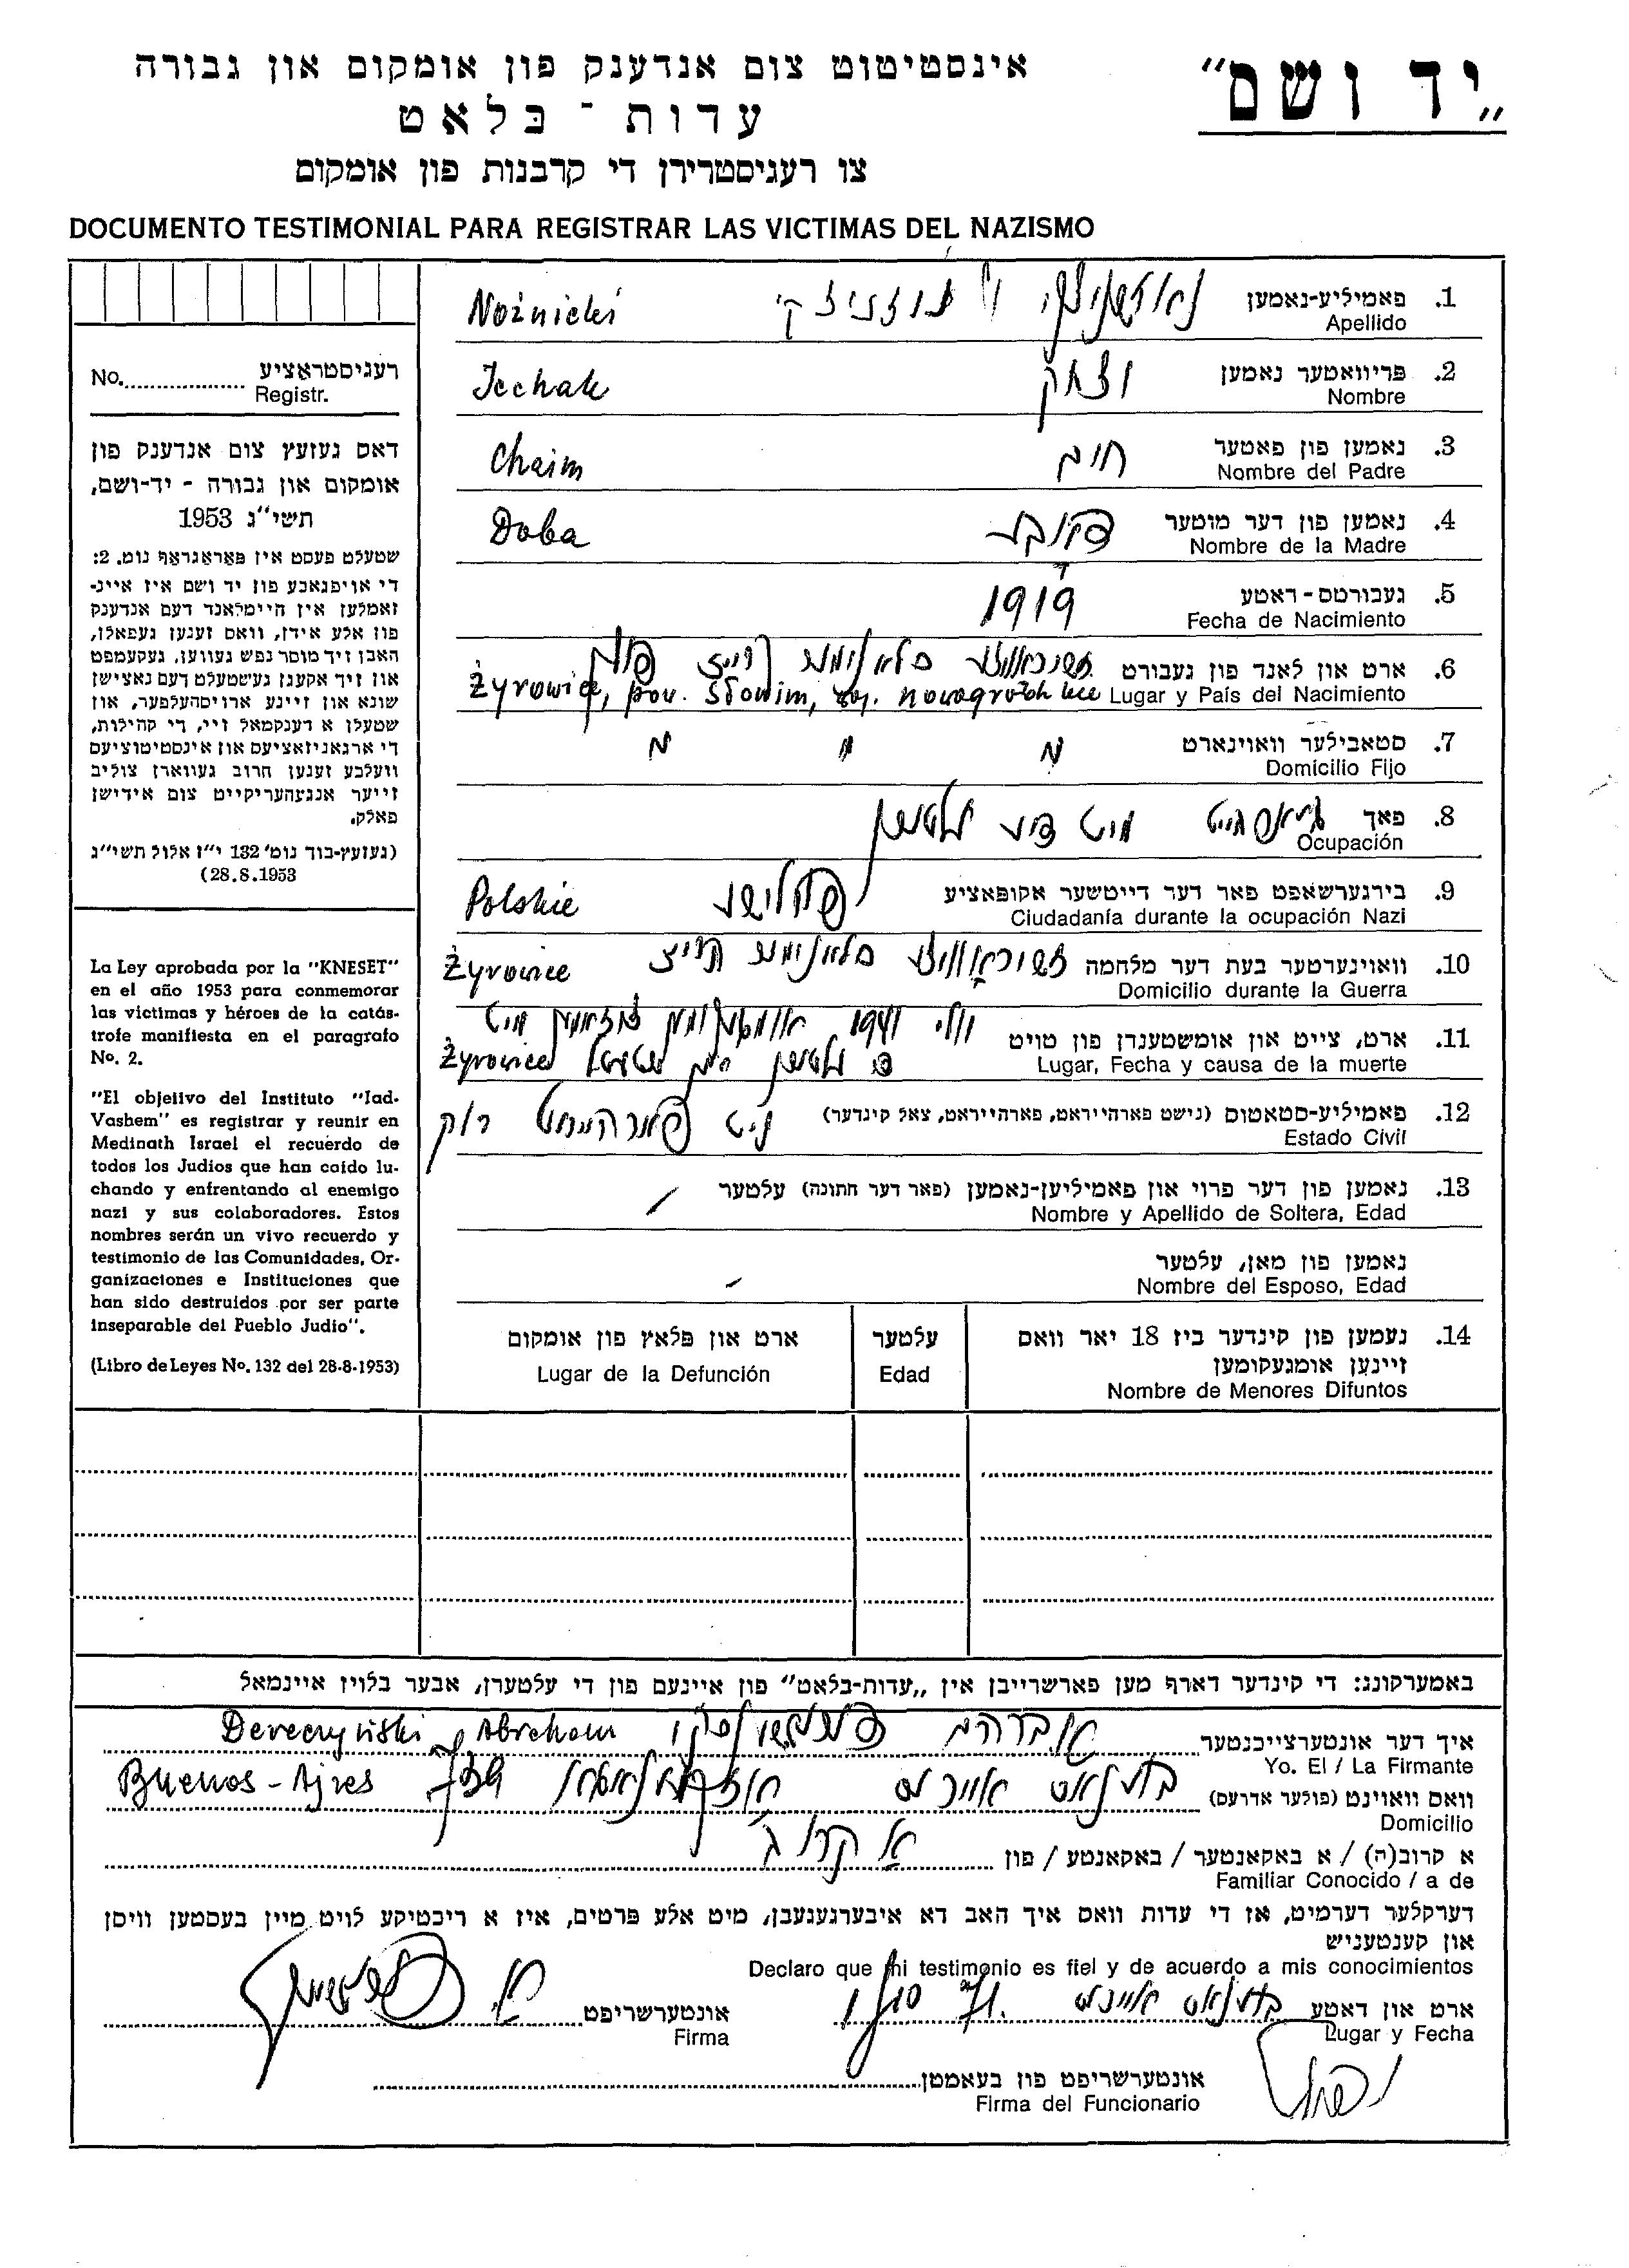 „יד ושם"
אינסטיטוט צום אנדענק פון אומקום און גבורה
עדות - בלאט
צו רעגיסטרירן די קרבנות פון אומקום
DOCUMENTO TESTIMONIAL PARA REGISTRAR LAS VICTIMAS DEL NAZISMO
No. רעגיסטראציע
Registr.
דאס געזעץ צום אנדענק פון
אומקום און גבורה - יד-ושם,
תשי"ג 1953
שטעלט פעסט אין פאראגראף נומ. 2:
די אויפגאבע פון יד ושם איז איינ-
זאמלען אין היימלאנד דעם אנדענק
פון אלע אידן, וואס זענען געפאלן,
האבן זיך מוסר נפש געווען, געקעמפט
און זיך אקעגן געשטעלט דעם נאצישן
שונא און זיינע ארויסהעלפער, און
שטעלן א דענקמאל זיי, די קהילות,
די ארגאניזאציעס און אינסטיטוציעס
וועלכע זענען חרוב געווארן צוליב
זייער אנגעהעריקייט צום אידישן
פאלק.
(געזעץ-בוך נומ' 132 י"ז אלול תשי"ג
28.8.1953)
La Ley aprobada por la "KNESET"
en el año 1953 para conmemorar
las victimas y héroes de la catás-
trofe manifiesta en el paragrafo
No. 2.
"El objetivo del Instituto "Iad-
Vashem" es registrar y reunir en
Medinath Israel el recuerdo de
todos los Judios que han caido lu-
chando y enfrentando al enemigo
nazi y sus colaboradores. Estos
nombres serán un vivo recuerdo y
testimonio de las Comunidades, Or-
ganizaciones e Instituciones que
han sido destruidos por ser parte
inseparable del Pueblo Judio".
(Libro de Leyes No. 132 del 28-8-1953)
1. פאמיליע-נאמען
Apellido Nożnicki
2. פריוואטער נאמען יצחק
Nombre Icchak
3. נאמען פון פאטער חיים
Nombre del Padre Chaim
4. נאמען פון דער מוטער
Nombre de la Madre Doba
5. געבורטס-דאטע 1919
Fecha de Nacimiento
6. ארט און לאנד פון געבורט
Lugar y País del Nacimiento Żyrowice, pow. Słonim,
7. סטאבילער וואוינארט " " "
Domicilio Fijo
8. פאך מיט די עלטערן
Ocupación
9. בירגערשאפט פאר דער דייטשער אקופאציע פויליש
Ciudadanía durante la ocupación Nazi Polskie
10. וואוינערטער בעת דער מלחמה
Domicilio durante la Guerra Żyrowice
11. ארט, צייט און אומשטענדן פון טויט יולי 1941 אומגעקומען צוזאמען מיט
Lugar, Fecha y causa de la muerte Żyrowice
12. פאמיליע-סטאטוס (נישט פארהייראט, פארהייראט, צאל קינדער) ניט פארהייראט
Estado Civil
13. נאמען פון דער פרוי און פאמיליען-נאמען (פאר דער חתונה) עלטער
Nombre y Apellido de Soltera, Edad
נאמען פון מאן, עלטער
Nombre del Esposo, Edad
14. נעמען פון קינדער ביז 18 יאר וואס
זיינען אומגעקומען
Nombre de Menores Difuntos
עלטער
Edad
ארט און פלאץ פון אומקום
Lugar de la Defunción
באמערקונג: די קינדער דארף מען פארשרייבן אין „עדות-בלאט" פון איינעם פון די עלטערן, אבער בלויז איינמאל
איך דער אונטערצייכנטער אברהם Abraham Dereczyński
Yo. El / La Firmante
וואס וואוינט (פולער אדרעס) Buenos-Ajres
Domicilio
א קרוב(ה) / א באקאנטער / באקאנטע / פון א קרוב
Familiar Conocido / a de
דערקלער דערמיט, אז די עדות וואס איך האב דא איבערגעגעבן, מיט אלע פרטים, איז א ריכטיקע לויט מיין בעסטען וויסן
און קענטעניש
Declaro que mi testimonio es fiel y de acuerdo a mis conocimientos
ארט און דאטע 1/10 71. אונטערשריפט
Lugar y Fecha Firma
אונטערשריפט פון בעאמטן
Firma del Funcionario